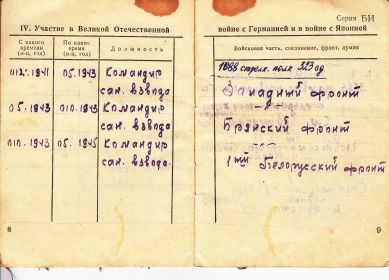 Серия БИ
IV. Участие в Великой Отечественной
войне с Германией и в войне с Японией
С какого времени (м-ц, год)
По какое время (м-ц, год)
Должность
Войсковая часть, соединение, фронт, армия
1941
05.1943
Командир
сан. взвода
1088 стрелк. полк 323 сд
Западный фронт
05.1943
010.1943
Командир
сан. взвода
Брянский фронт
010.1943
05.1945
Командир
сан. взвода.
1ый Белорусский фронт
8
9